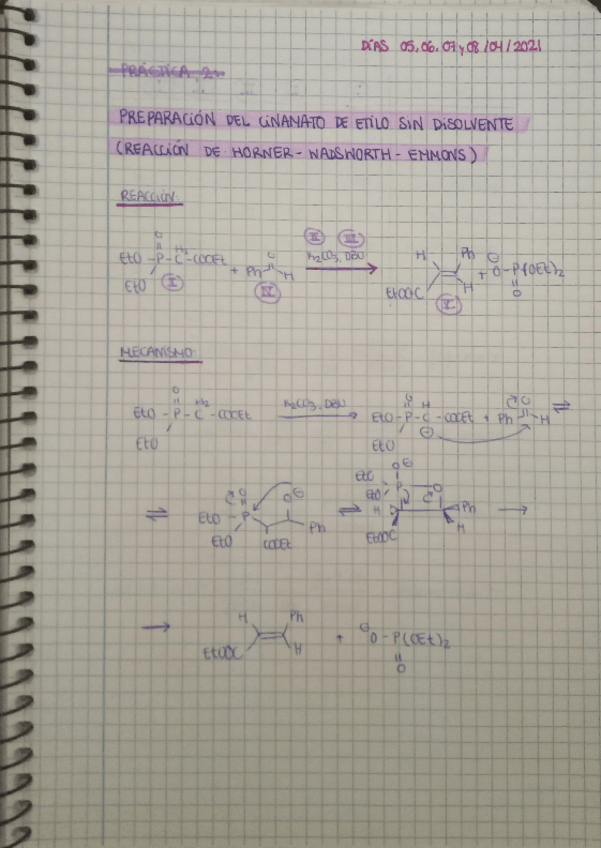 DÍAS 05, 06, 07 y 08/04/2021
PRÁCTICA 2
PREPARACIÓN DEL CINAMATO DE ETILO SIN DISOLVENTE
(REACCIÓN DE HORNER-WADSWORTH-EMMONS)
REACCIÓN:
O O
EtO-P-CH2-COOEt + Ph H
EtO I IV
II III
K2CO3, DBU
H Ph
EtOOC H
V
+ ⊖O-P(OEt)2
O
MECANISMO:
O
EtO-P-CH2-COOEt
EtO
K2CO3, DBU
O H
EtO-P-C-COOEt + Ph O H ⇌
EtO ⊖
⇌ O O⊖
EtO P
EtO COOEt Ph
⇌ O⊖
EtO P O
EtO
H Ph
EtOOC H →
→ H Ph
EtOOC H + ⊖O-P(OEt)2
O